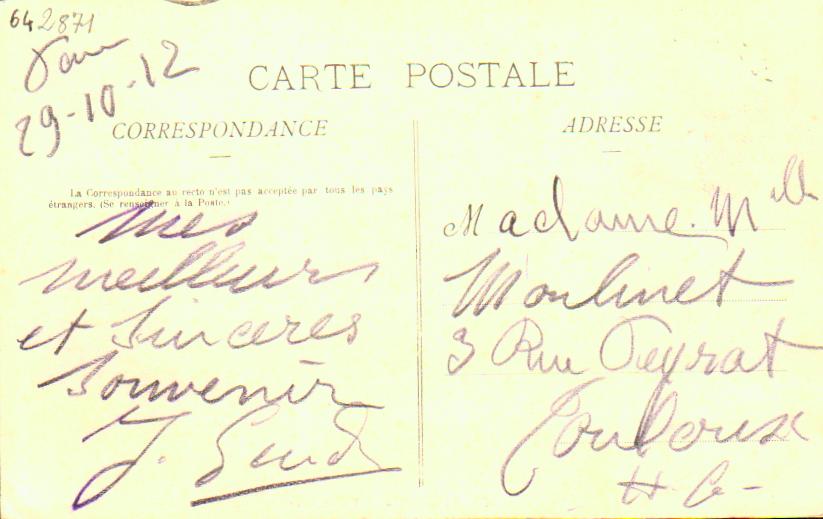 642871
29-10-12
CARTE POSTALE
CORRESPONDANCE
La Correspondance au recto n'est pas acceptée par tous les pays
étrangers. (Se renseigner à la Poste.)
Mes
meilleurs
et Sincères
Souvenir
J.
ADRESSE
Madame. Mlle
Moulinet
3 Rue Peyrat
Toulouse
H. G-